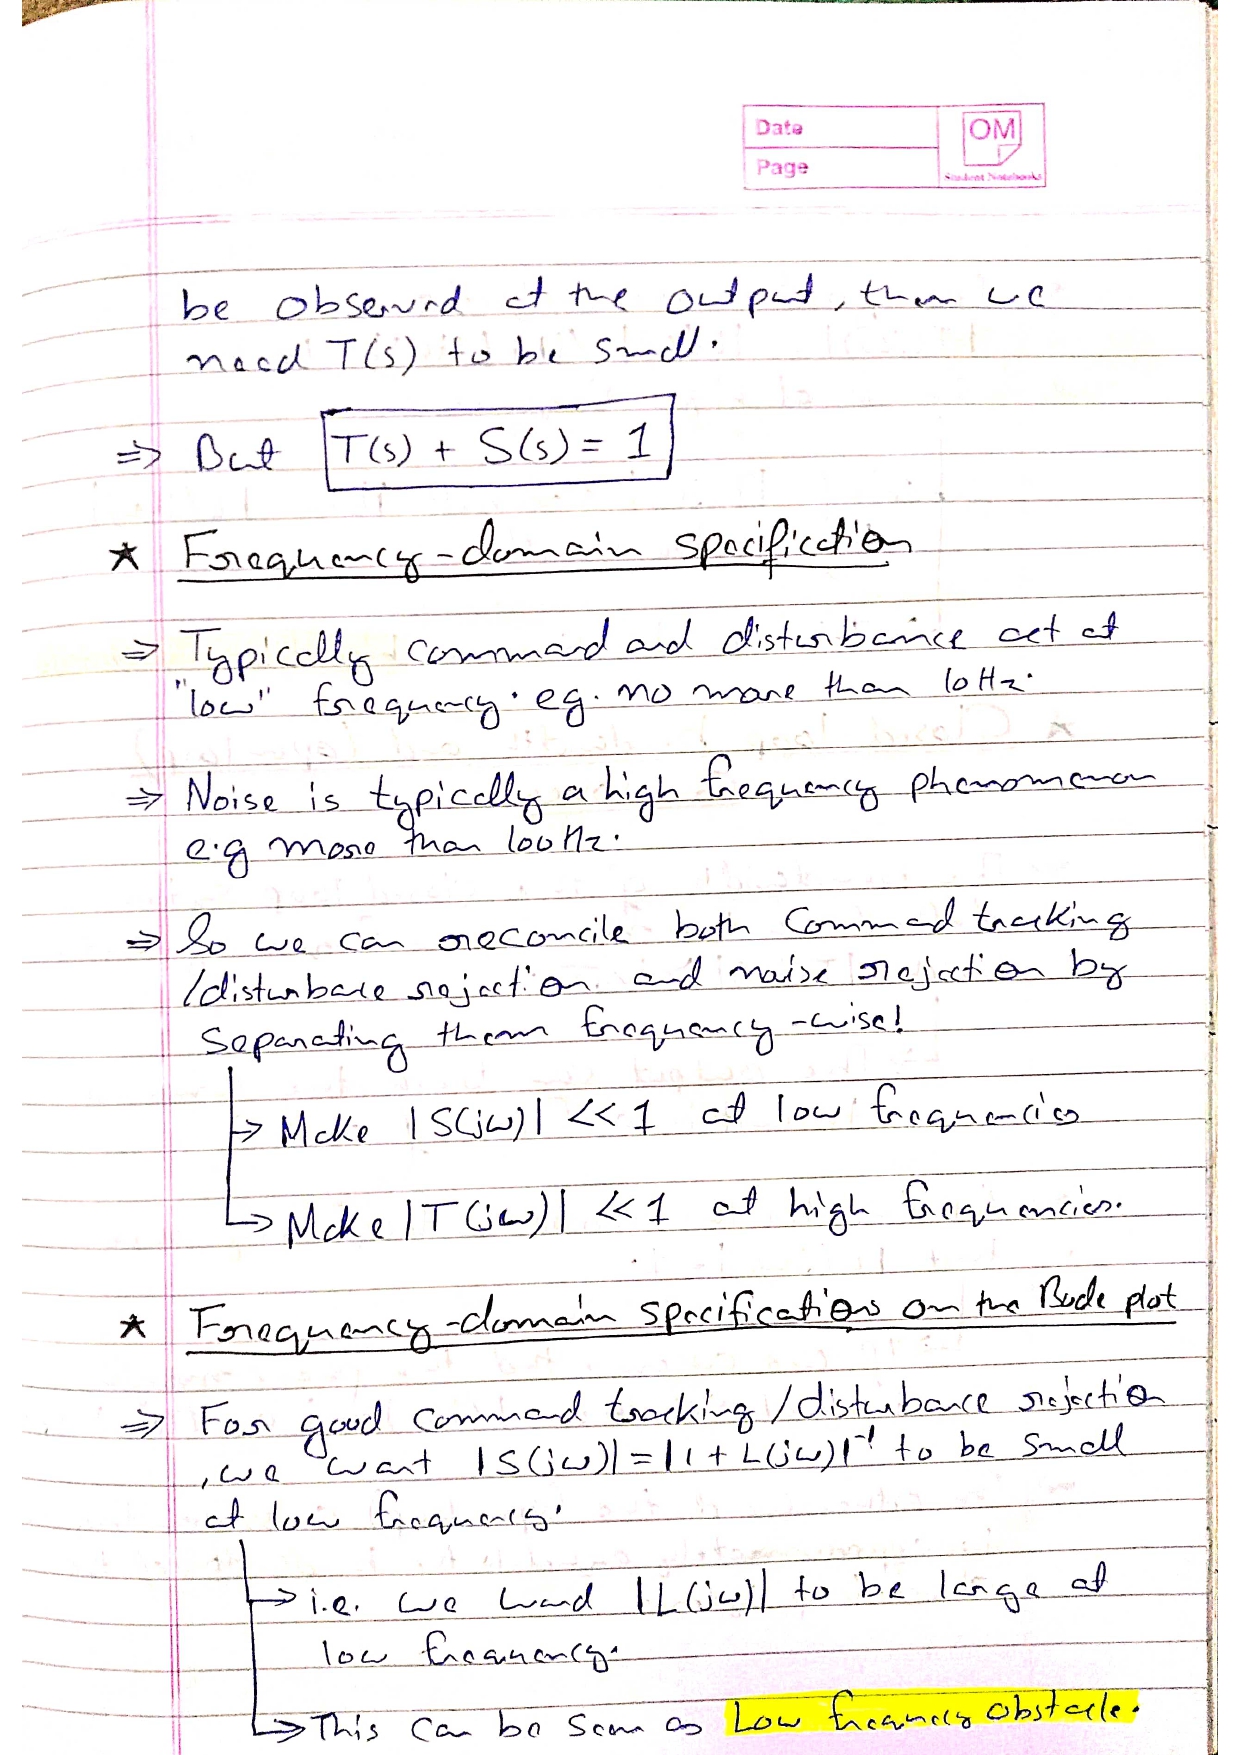 Date
Page
OM
Student Notebooks
be observed at the output, then we
need T(s) to be small.
⇒ But T(s) + S(s) = 1
★ Frequency-domain specification
⇒ Typically command and disturbance act at
"low" frequency. eg. no more than 10Hz.
⇒ Noise is typically a high frequency phenomenon
e.g more than 100Hz.
⇒ So we can reconcile both Command tracking
/disturbance rejection and noise rejection by
Separating them frequency-wise!
→ Make |S(jω)| << 1 at low frequencies
→ Make |T(jω)| << 1 at high frequencies.
★ Frequency-domain specifications on the Bode plot
⇒ For good command tracking/disturbance rejection
, we want |S(jω)| = |1 + L(jω)|⁻¹ to be small
at low frequency.
→ i.e. we want |L(jω)| to be large at
low frequency.
→ This can be seen as Low frequency obstacle.